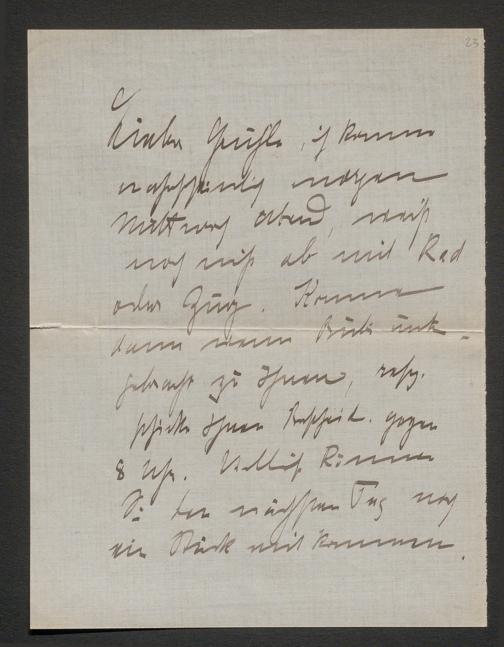 23
Lieber Gruhle, ich komme
wahrscheinlich morgen
Mittwoch Abend, weiß
noch nicht ob mit Rad
oder Zug. Komme
dann wenn Rad
gebracht zu Ihnen, resp.
schicke Ihnen Bescheid. gegen
8 Uhr. Vielleicht können
Sie den nächsten Tag noch
ein Stück mit kommen.